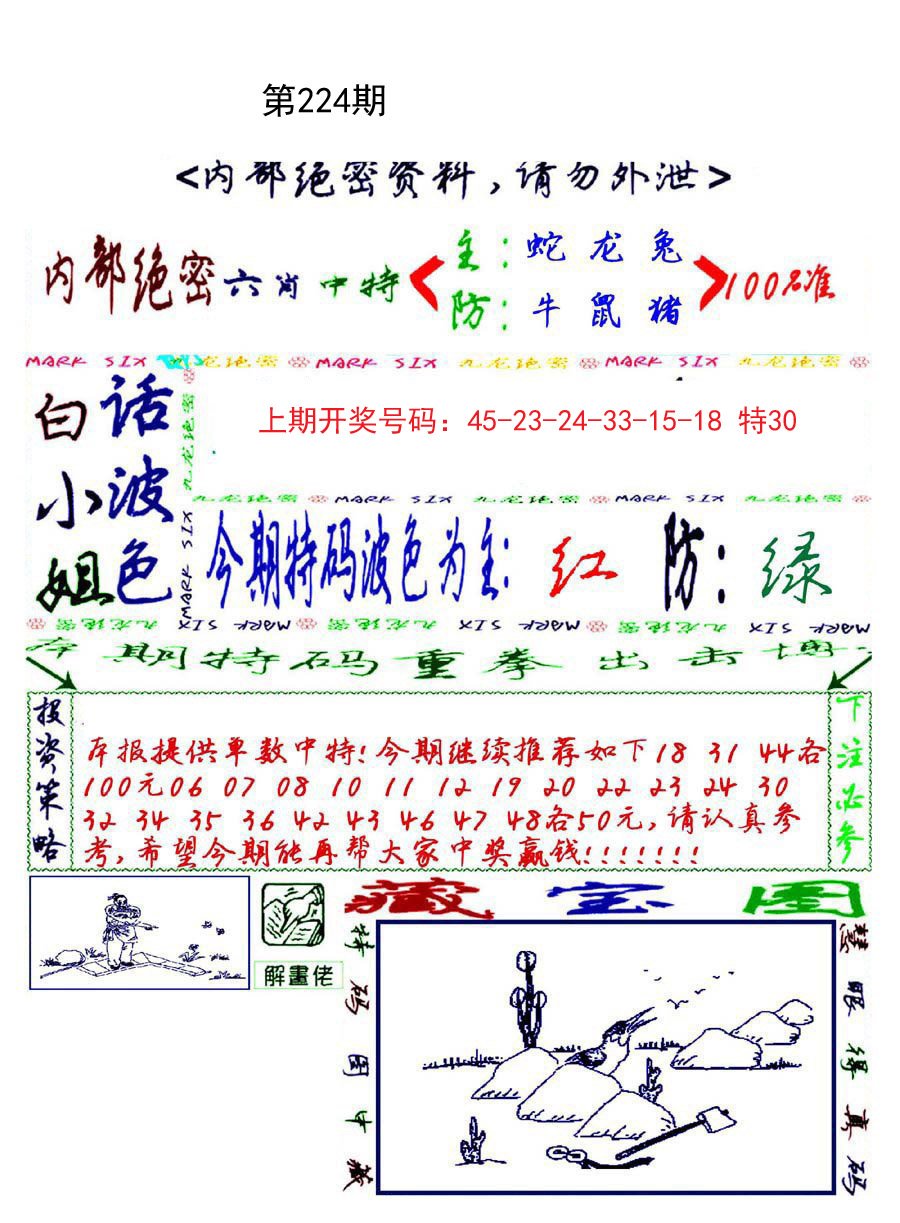 第224期
<内部绝密资料,请勿外泄>
内部绝密六肖中特
主:蛇龙兔
防:牛鼠猪
100%准
MARK SIX 九龙绝密 MARK SIX 九龙绝密 MARK SIX 九龙绝密
白话
小波
姐色
上期开奖号码：45-23-24-33-15-18 特30
九龙绝密
MARK SIX
九龙绝密 MARK SIX 九龙绝密 MARK SIX 九龙绝密
今期特码波色为主:红 防:绿
九龙绝密 MARK SIX 九龙绝密 MARK SIX 九龙绝密 MARK SIX
本期特码重拳出击博
投资策略
本报提供单数中特!今期继续推荐如下18 31 44各
100元06 07 08 10 11 12 19 20 22 23 24 30
32 34 35 36 42 43 46 47 48各50元,请认真参
考,希望今期能再帮大家中奖赢钱!!!!!!!
下注必参
解畫佬
藏宝图
特码图中藏
慧眼得真码